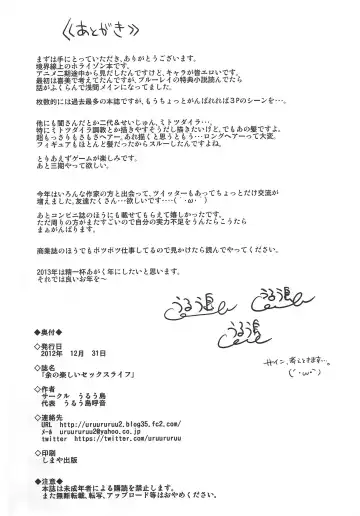 ≪あとがき≫
まずは手にとっていただき、ありがとうございます。
境界線上のホライゾン本です。
アニメ二期途中から見だしたんですけど、キャラが皆エロいです。
最初は喜美で考えてたんですが、ブルーレイの特典小説読んでたら
話がふくらんで浅間メインになってました。
枚数的には過去最多の本誌ですが、もうちょっとがんばれれば3Pのシーンを…。
他にも闇さんだとか二代&せいじゅん、ミトツダイラ…。
特にミトツダイラ調教とか描きやすそうだし描きたいけど、でもあの髪ですよ。
超もっさりもさもさヘアー、あれ描くと思うともう…ロングヘアーって大変。
フィギュアもほとんど髪だったからスルーしたんですよね。
とりあえずゲームが楽しみです。
あとミ期。
今年はいろんな作家の方と出会って、ツイッターもあってちょっとだけ交流が
増えました。友達たくさん…欲しいです…（´・ω・｀）
あとコンビニ誌のほうにも載せてもらえて嬉しかったです。
ただ周りの方がまですごいので自分の実力不足をうんたらこうたら
まぁがんばります。
商業誌のほうでもボツボツ仕事してるので見かけたら読んでやってください。
2013年は精一杯あがく年にしたいと思います。
それでは良いお年を～
うるう島
うるう島
うるう島
サイン、考えときます…。
(´・ω・｀)
◆奥付◆
◇発行日
2012年 12月 31日
◇誌名
「余の楽しいセックスライフ」
◇作者
サークル うるう島
代表 うるう島呼音
◇連絡先
URL http://uruururuu2.blog35.fc2.com/
ﾒｰﾙ uruururuu2@yahoo.co.jp
twitter https://twitter.com/uruururuu
◇印刷
しまや出版
◆注意◆
本誌は未成年者による購読を禁止します。
また無断転載、転写、アップロード等はおやめください。